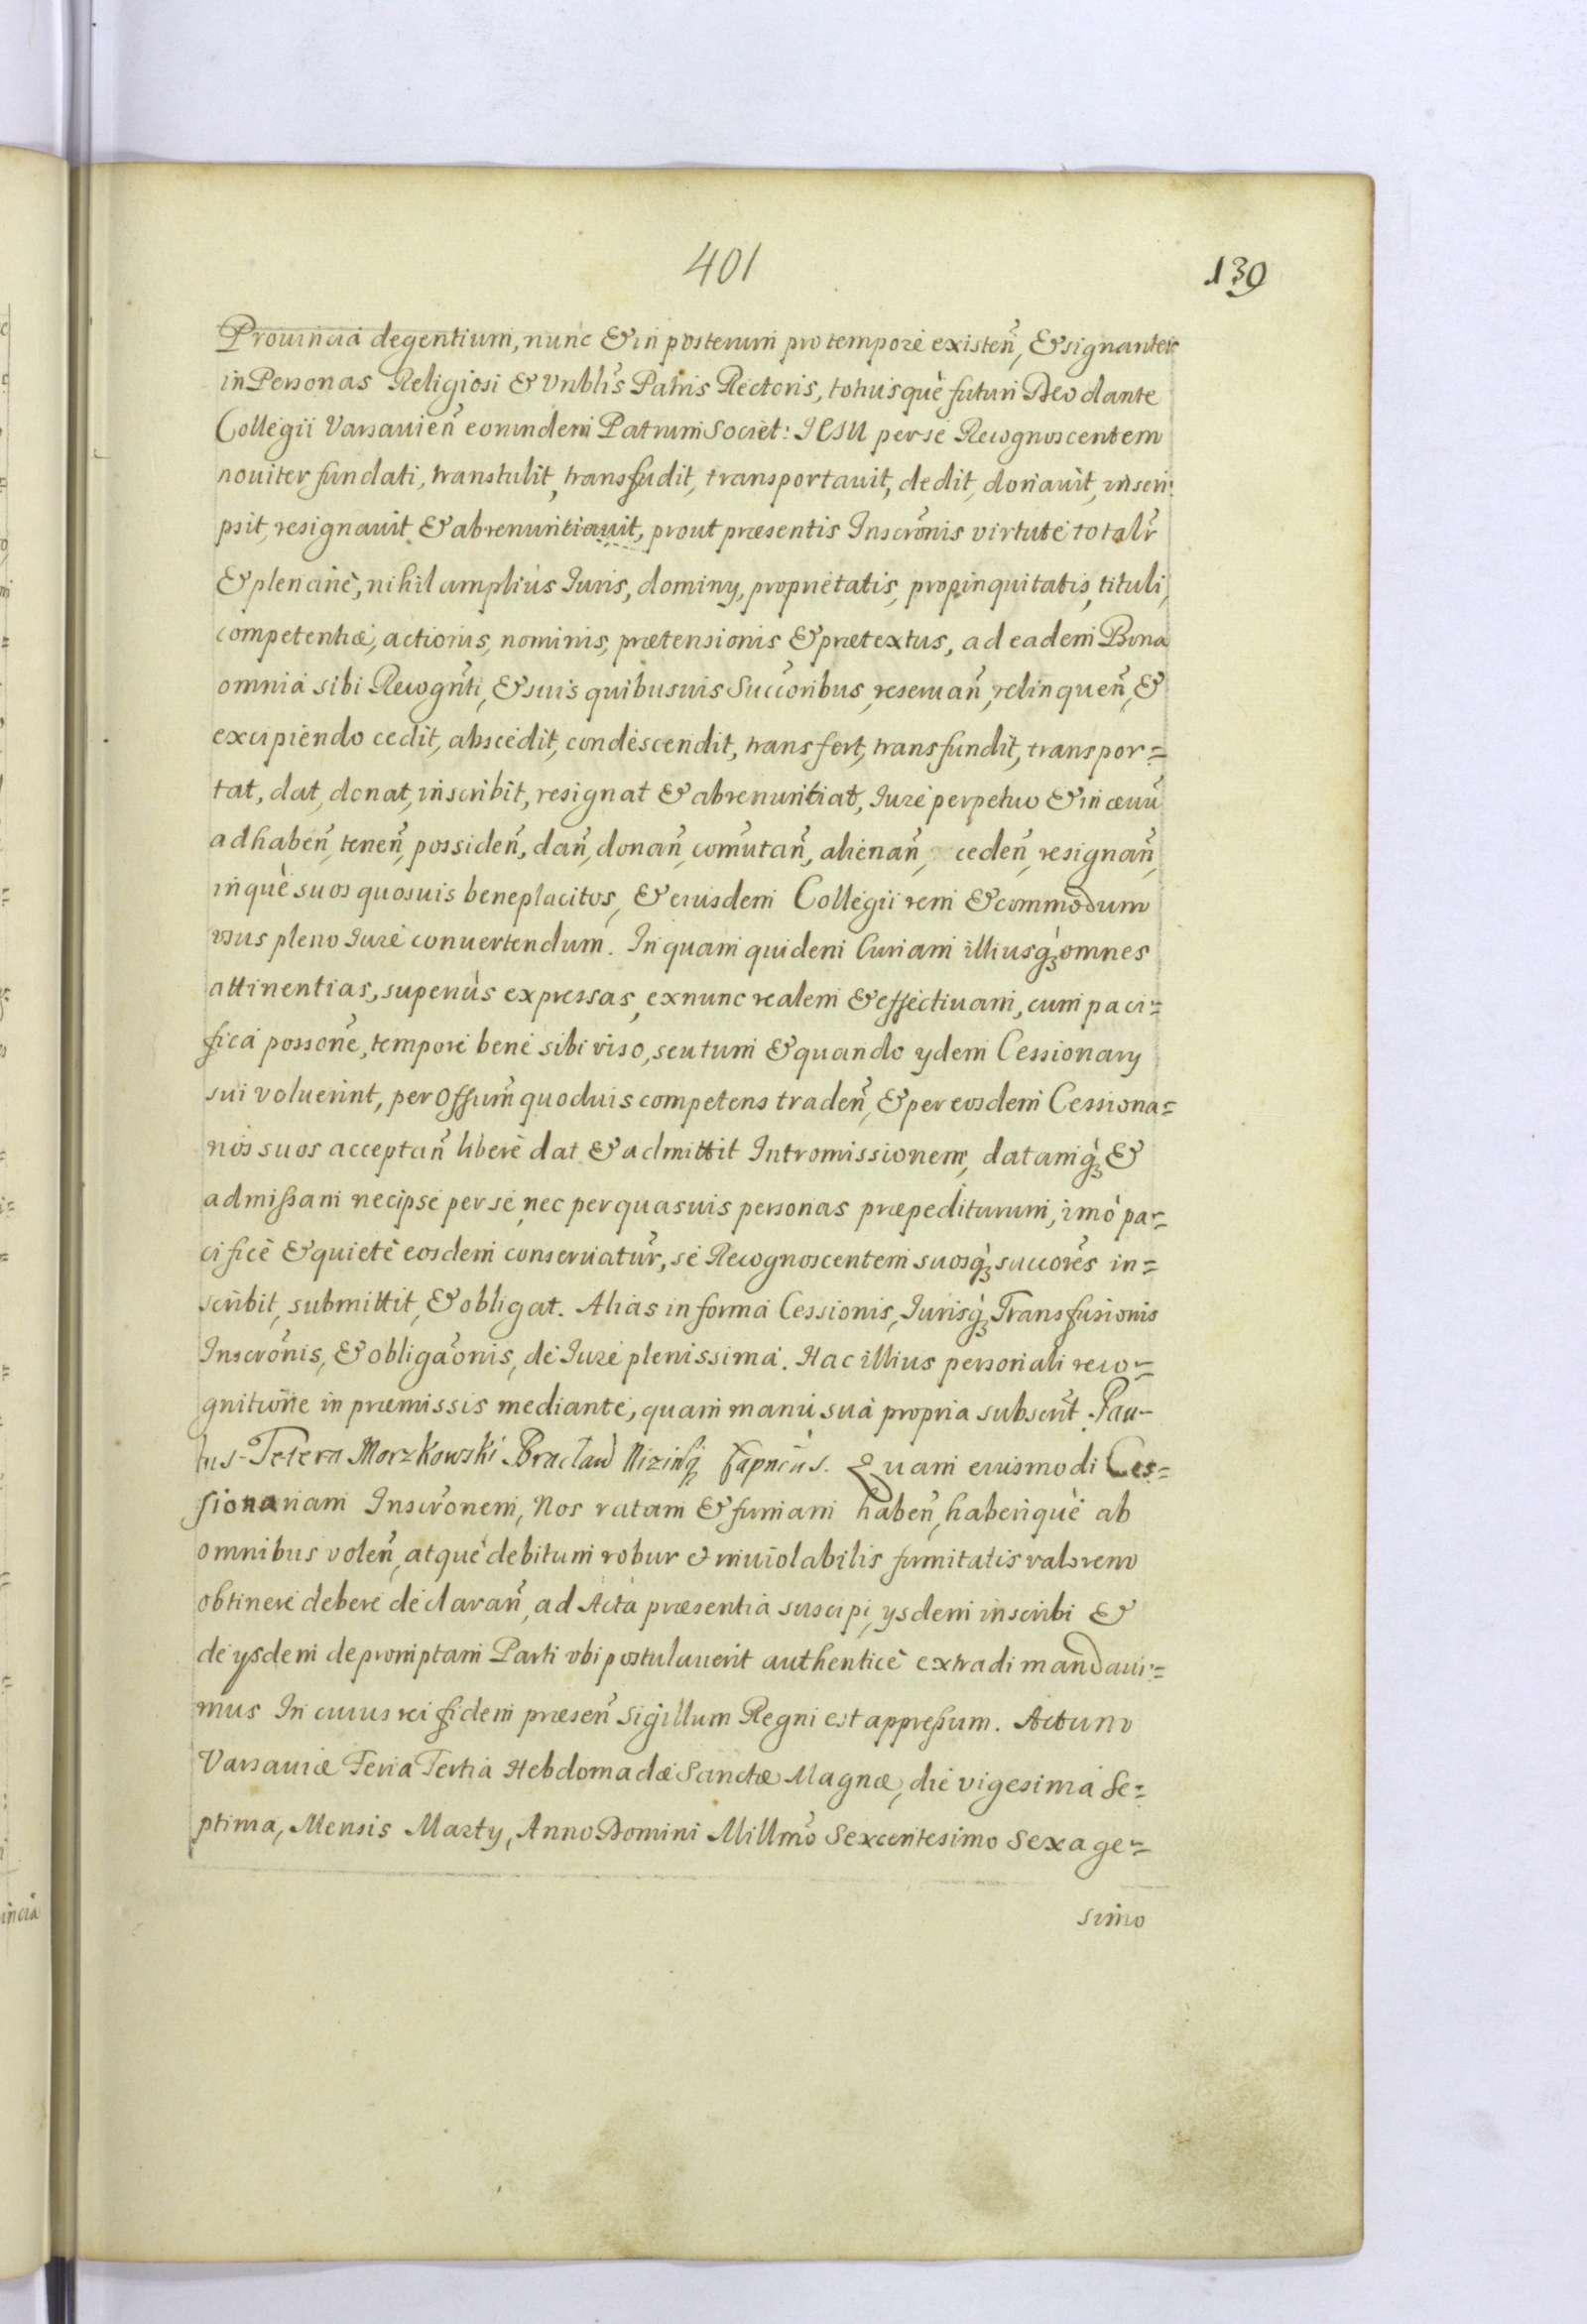 401
139
Prouinciá degentium, nunc & in posterum pro temporè existeñ, & signanter
in Personas Religiosi & Vnblis Patris Rectoris, totiusquè futuri Deo dante
Collegii Varsauieñ eorundem Patrum Societ: IESU per se Recognoscentem
nouiter fundati, transtulit, transfudit, transportauit, dedit, donauit, inscri:
psit, resignauit & abrenuntiauit, prout præsentis Inscrõnis virtutè totalr
& plenariè, nihil ampliùs Iuris, dominy, proprietatis, propinquitatis, tituli,
competentiæ, actionis, nominis, prætensionis & prætextus, ad eadem Bona
omnia sibi Recognti, & suis quibusuis Succoribus, reseruañ, relinqueñ, &
excipiendo cedit, abscedit, condescendit, transfert, transfundit, transpor=
tat, dat, donat, inscribit, resignat & abrenuntiat, Iurè perpetuo & in æuũ
ad habeñ, teneñ, possideñ, dañ, donañ, comũtañ, alienañ, cedeñ, resignañ,
inquè suos quosuis beneplacitos, & eiusdem Collegii rem & commodum
vsus pleno Iurè conuertendum. In quam quidem Curiam illiusq̀; omnes
attinentias, superiùs expressas, exnunc realem & effectiuam, cum paci=
ficá possonè, temporè benè sibi viso, seu tum & quando ydem Cessionary
sui voluerint, per Offum quoduis competens tradeñ, & per eosdem Cessiona=
rios suos acceptañ liberè dat & admittit Intromissionem, datamq̀; &
admissam nec ipse per se, nec per quasuis personas præpediturum, imò pa=
cificè & quietè eosdem conseruatur, sè Recognoscentem suosq̀; succorẽs in=
scribit, submittit, & obligat. Aliàs in formá Cessionis, Iurisq̀; Transfusionis
Inscrõnis, & obligaõnis, dè Iurè plenissimá. Hac illius personali reco=
gnitione in præmissis mediantè, quam manú suá propria subscrit. Pau-
lus Tetera Morzkowski Bracław Nizinsq; Capneus. Quam eiusmodi Ces=
sionariam Inscrõnem, Nos ratam & firmam habeñ, haberiquè ab
omnibus voleñ, atquè debitum robur & inuiolabilis firmitatis valorem
obtinerè deberè declarañ, ad Acta præsentia suscipi, ysdem inscribi &
dè ysdem depromptam Parti vbi postulauerit authenticè extradi mandaui=
mus In cuius rei fidem præseñ Sigillum Regni est appressum. Actum
Varsauiæ Feria Tertia Hebdomadæ Sanctæ Magnæ, diè vigesimá Se=
ptima, Mensis Marty, Anno Domini Millmõ Sexcentesimo Sexage=
simo